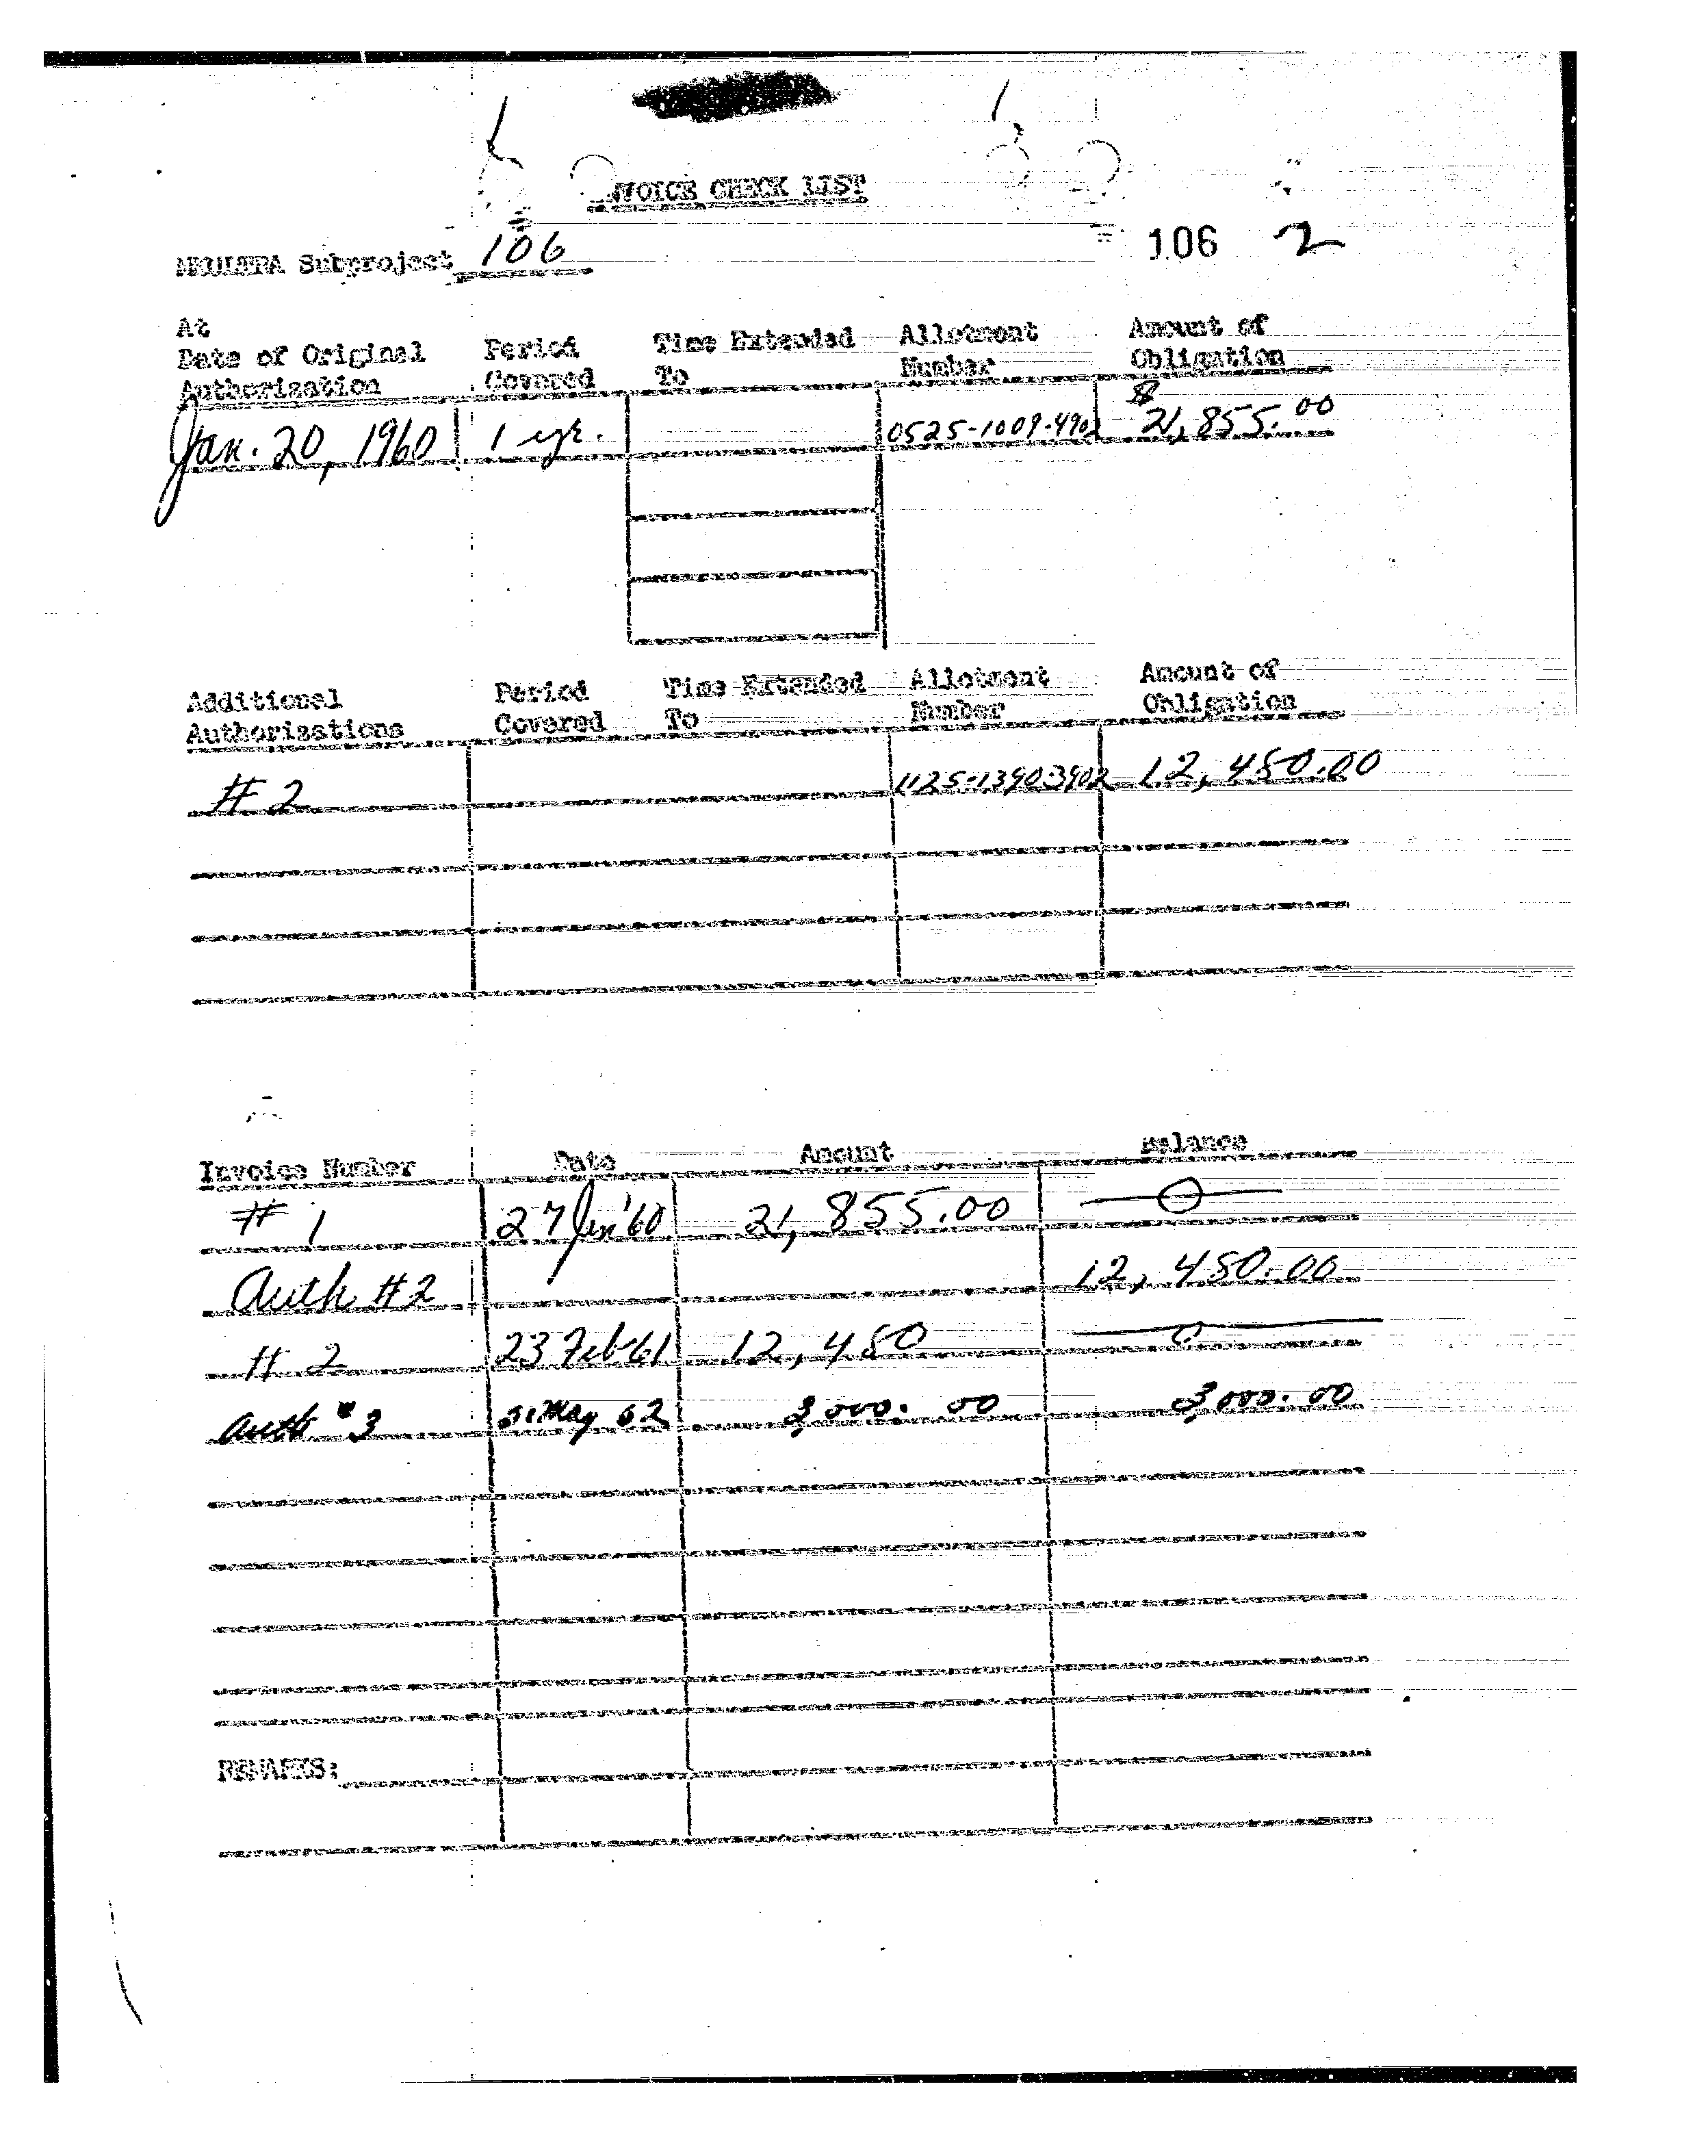 INVOICE CHECK LIST
106 2
MKULTRA Subproject 106
At
Date of Original Authorization Period Covered Time Extended To Allotment Number Amount of Obligation
Jan. 20, 1960 1 yr. 0525-1009-4902 $21,855.00
Additional Authorizations Period Covered Time Extended To Allotment Number Amount of Obligation
# 2 1125-1390-3902 12,480.00
Invoice Number Date Amount Balance
# 1 27 Jan '60 21,855.00 0
Auth #2 12,480.00
# 2 23 Feb 61 12,480 0
Auth #3 May 62 3,000.00 3,000.00
REMARKS: